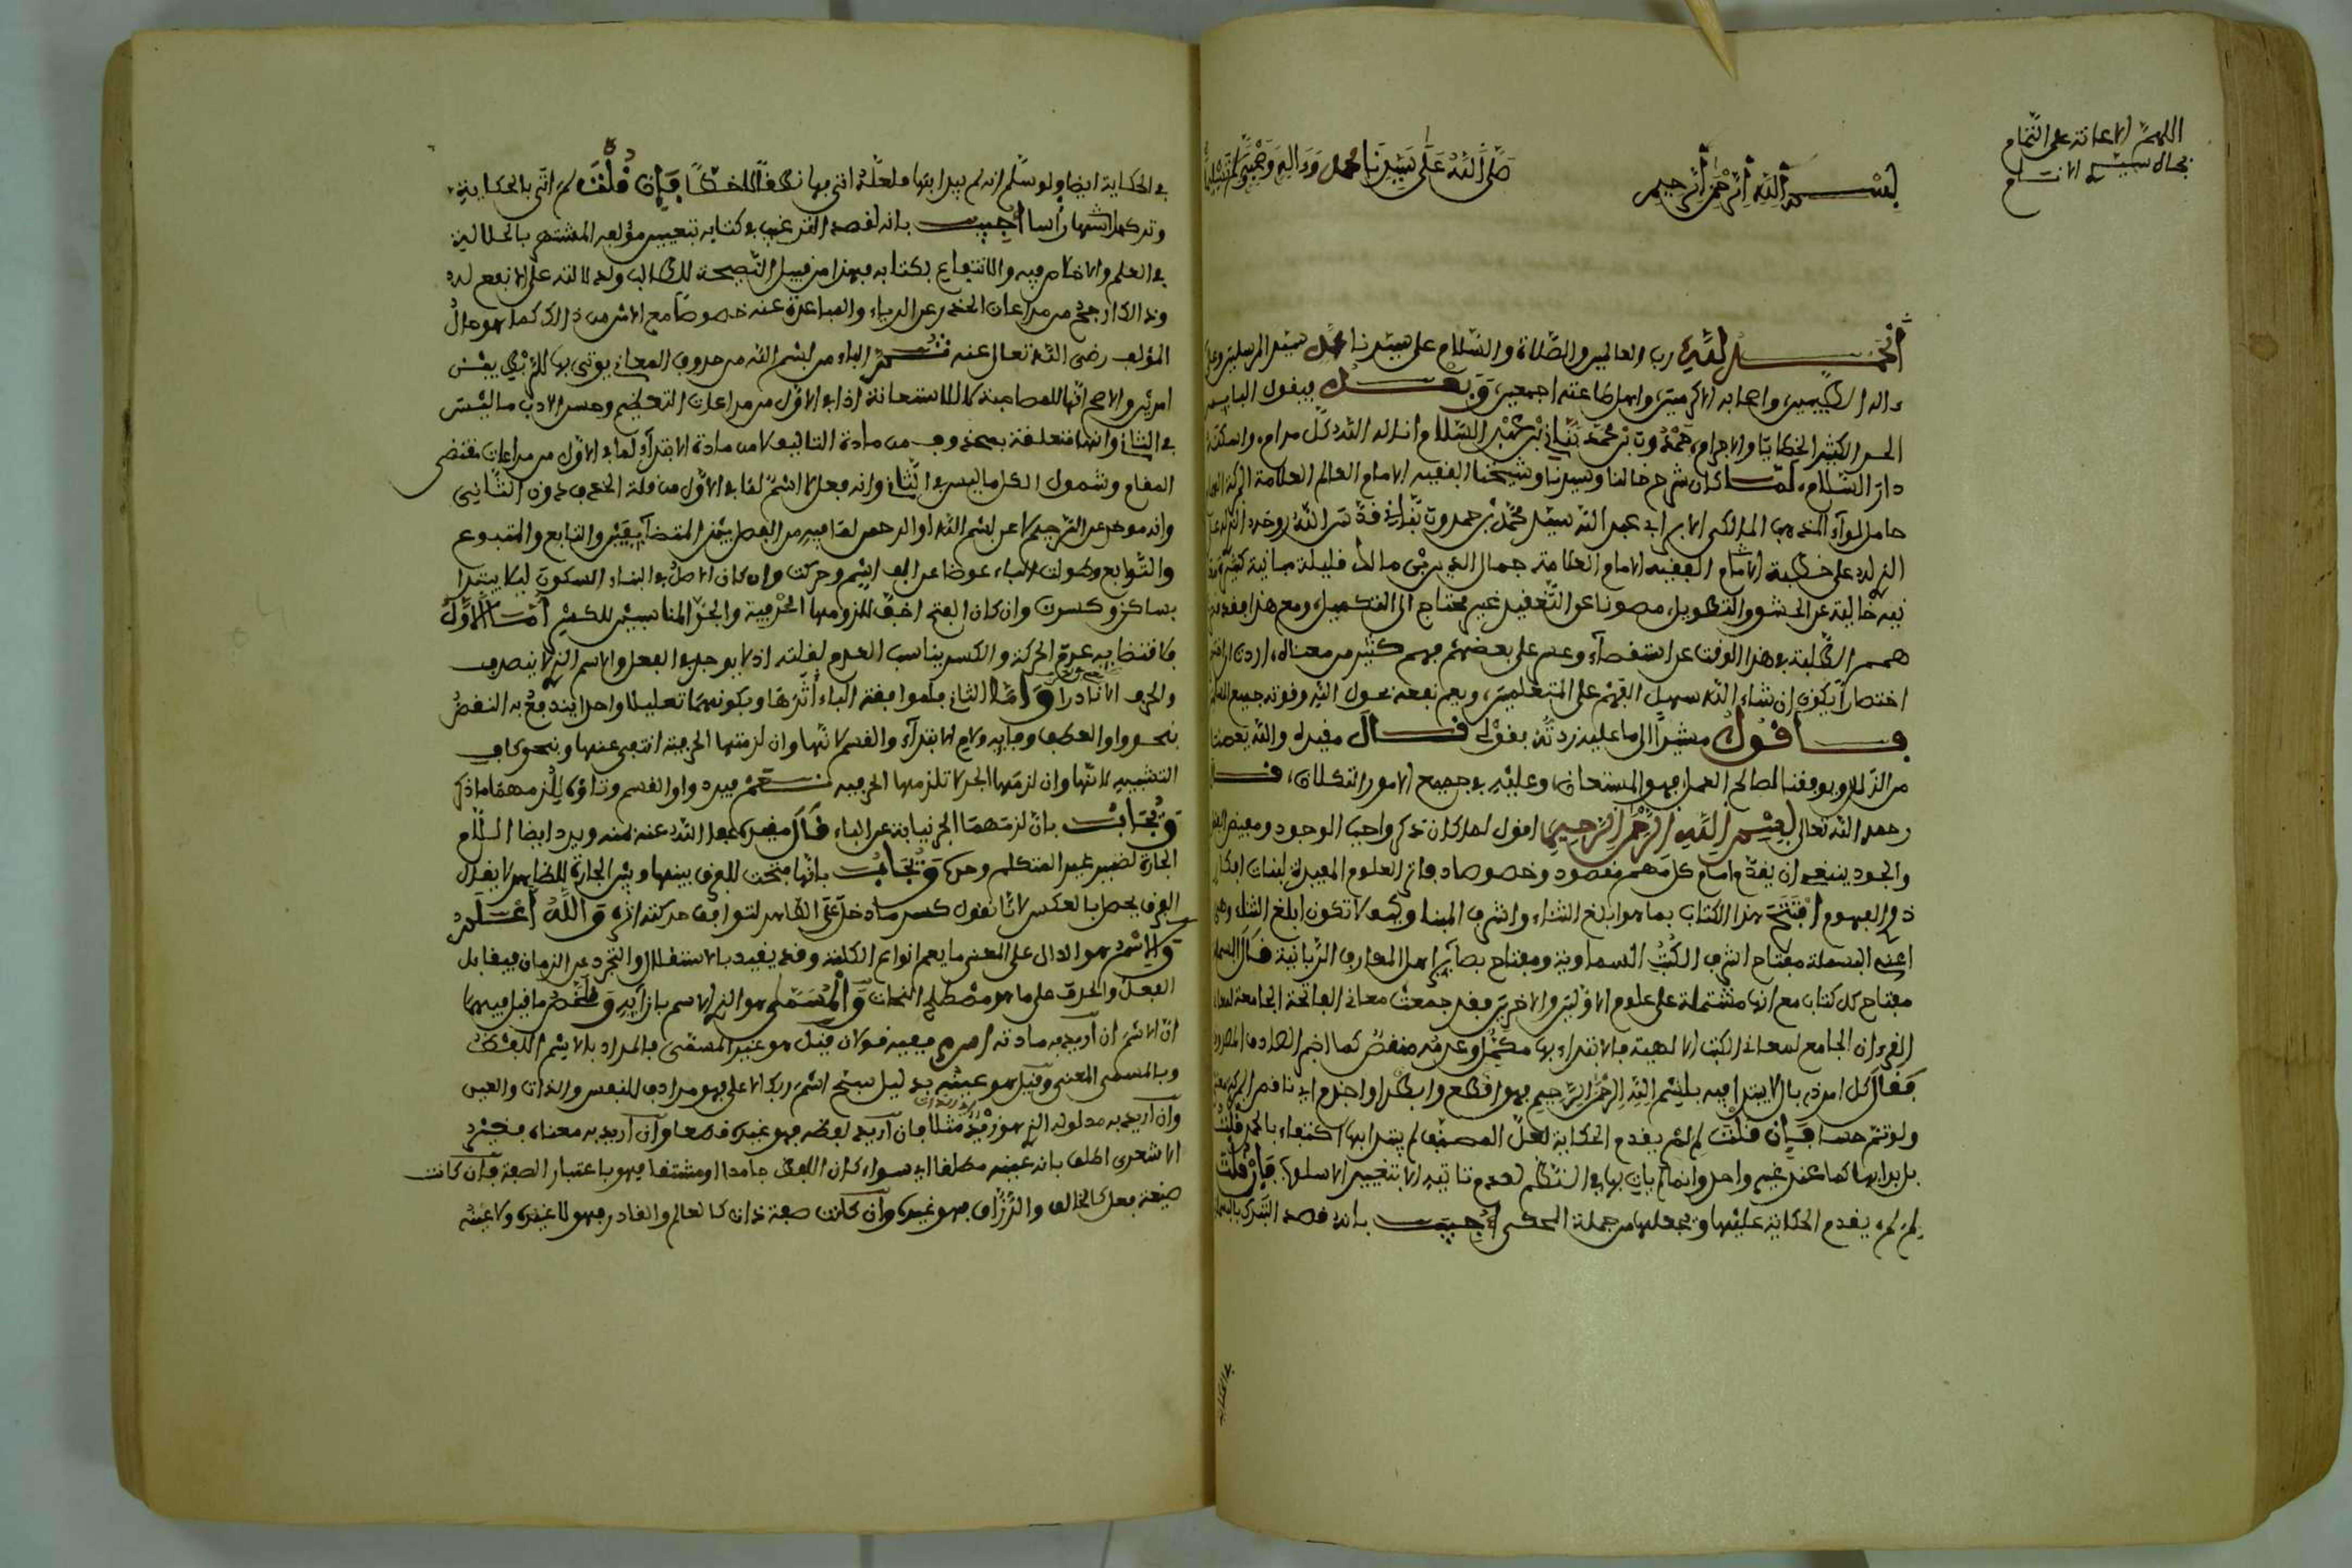 اللهم الاعانة على التمام
بجاه سيد الانام
بسم الله الرحمن الرحيم صلى الله على سيدنا محمد وءاله وصحبه وسلم تسليما
الحمد لله رب العالمين والصلاة والسلام على سيدنا محمد سيد المرسلين وعلى
ءاله الطيبين واصحابه الاكرمين واهل طاعته اجمعين وبعد فيقول البايس
الكثير الخطايا والاجرام حمدون بن محمد بناني بن عبد السلام اناله الله كل مرام واسكنه
دار السلام لما كان شرح خالنا وسيدنا وشيخنا الفقيه الامام العالم العلامة
حامل لواء المذهب المالكي ابي عبد الله سيد محمد بن حمدون بناني قدس الله روحه
الذي له على خطبة الامام الفقيه الامام العلامة جمال الدين بن مالك قليلة مبانيه كثيرة
خالية عن الحشو والتطويل مصونا عن التعقيد غير محتاج الى التكميل ومع هذا
همم الطلبة في هذا الوقت عن استقصاء وعسر على بعضهم فهم كثير من معناه اردت
اختصارا يكون ان شاء الله سهل الفهم على المتعلمين ويعم نفعه بحول الله وقوته جميع
فاقول مشيرا الى ما عليه زدته بقولي قال مقيده والله يعصمنا
من الزلل ويوفقنا لصالح العمل فهو المستعان وعليه في جميع الامور التكلان قال
رحمه الله تعالى بسم الله الرحمن الرحيم اقول لما كان ذكر واجب الوجود ومفيض
والجود ينبغي ان يقدم امام كل مهم مقصود وخصوصا دفاتر العلوم المفيدة لبنات افكار
ذوي الفهوم افتتح هذا الكتاب بما هو ابلغ الثناء واشرف المبنا وكيف لا تكون ابلغ الثناء وهي
اعني البسملة مفتاح اشرف الكتب السماوية ومفتاح بصاير اهل المعارف الربانية
مفتاح كل كتاب مع انها مشتملة على علوم الاولين والاخرين فقد جمعت معاني الفاتحة الجامعة
القرءان الجامع لمعاني الكتب الالهية فالابتداء بها مكمل وغيره منقص كما اخبر الصادق المصدوق
فقال كل امر ذي بال لا يبتدا فيه ببسم الله الرحمن الرحيم فهو اقطع وابتر او اجذم اي ناقص
ولو تم حسا فان قلت لم لم يقدم الحكاية لعل المصنف لم يبتدا بها اكتفاء بالحمد قلت
بل بدا بها كما عند غير واحد وانما لم يات بها في النظم لعدم تاتيه الا بتغيير الاسلوب فان قلت
لم لم يقدم الحكاية عليها ويجعلها من جملة المحكي اجيب بانه قصد التبرك
في الحكاية ايضا ولو سلم انه لم يبدا بها فلعله اتى بها نطقا لا خطا فان قلت لم اتى بالحكاية
وتركها اشهارا اسا اجيب بانه لقصد الترغيب في كتابه بتعيين مؤلفه المشتهر بالجلالة
في العلم والانتفاع بكتابه فهذا من قبيل النصيحة للطالب
وذلك ارجح من مراعات الحذر عن الرياء والمباعدة عنه خصوصا مع الامن من ذلك كما هو حال
المؤلف رضي الله تعالى عنه ثم الباء من بسم الله من حروف المعاني يوتى بها للربط بين
امرين والاصح انها للمصاحبة لا للاستعانة اذ في الاول من مراعات التعظيم وحسن الادب ما ليس
في الثاني وانها متعلقة بمحذوف من مادة التاليف لا من مادة الابتداء لما في الاول من مراعات مقتضى
المقام وشمول الكل ما ليس في الثاني وانه فعل لا اسم لما في الاول من قلة الحذف دون الثاني
وانه موخر عن الترجيم لا عن بسم الله او الرحمن لما فيه من الفصل بين المتضايفين والتابع والمتبوع
والتوابع وطولت الباء عوضا عن الف اسم وحركت وان كان الاصل في البناء السكون ليلا يبتدا
بساكن وكسرت وان كان الفتح اخف للزومها الحرفية والجر المناسبين للكسر اما الاول
فلاقتضايه عدم الحركة والكسر يناسب العدم لقلته اذ لا يوجد في الفعل والاسم الذي لا ينصرف
والحرف الا نادرا واما الثاني فلموافقة الباء اثرها وبكونهما تعليلا واحدا يندفع به النقض
بنحو واو العطف وفايه ولام الابتداء والقسم لانها وان لزمتها الحرفية انتفى عنها ونحو كاف
التشبيه لانها وان لزمها الجر لا تلزمها الحرفيه نعم يرد واو القسم وتاؤه للزومهما ما ذكر
ويجاب بان لزمهما الجر نيابة عن الباء قال مقيده عفا الله عنه بمنه ويرد ايضا اللام
الجارة لضمير غير المتكلم وحده ويجاب بانها فتحت للفرق بينها وبين الجارة للظاهر لا يقال
الفرق يحصل بالعكس لانا نقول كسر ما دخل على الظاهر لتوافق حركته اثره والله اعلم
والاسم هو الدال على المعنى ما يعم انواع الكلمة وقد يقيد بالاستقلال والتجرد عن الزمان فيقابل
الفعل والحرف على ما هو مصطلح النحات والمسمى هو الذي الاسم بازايه وملخص ما قيل فيهما
ان الاسم ان اريد به مادته ا س م ففيه قولان قيل هو غير المسمى فالمراد بالاسم اللفظ
وبالمسمى المعنى وقيل هو عينه بدليل سبح اسم ربك الاعلى فهو مرادف للنفس والذات والعين
وان اريد به مدلوله الذي هو زيد مثلا فان اريد لفظه فهو غيره قطعا وان اريد به معناه فعند
الاشعري اطلق بانه عينه مطلقا اي سواء كان اللفظ جامدا او مشتقا فهو باعتبار الصفة فان كانت
صفة فعل كالخالق والرزاق فهو غيره وان كانت صفة ذات كالعالم والقادر فهو لا غيره ولا عينه